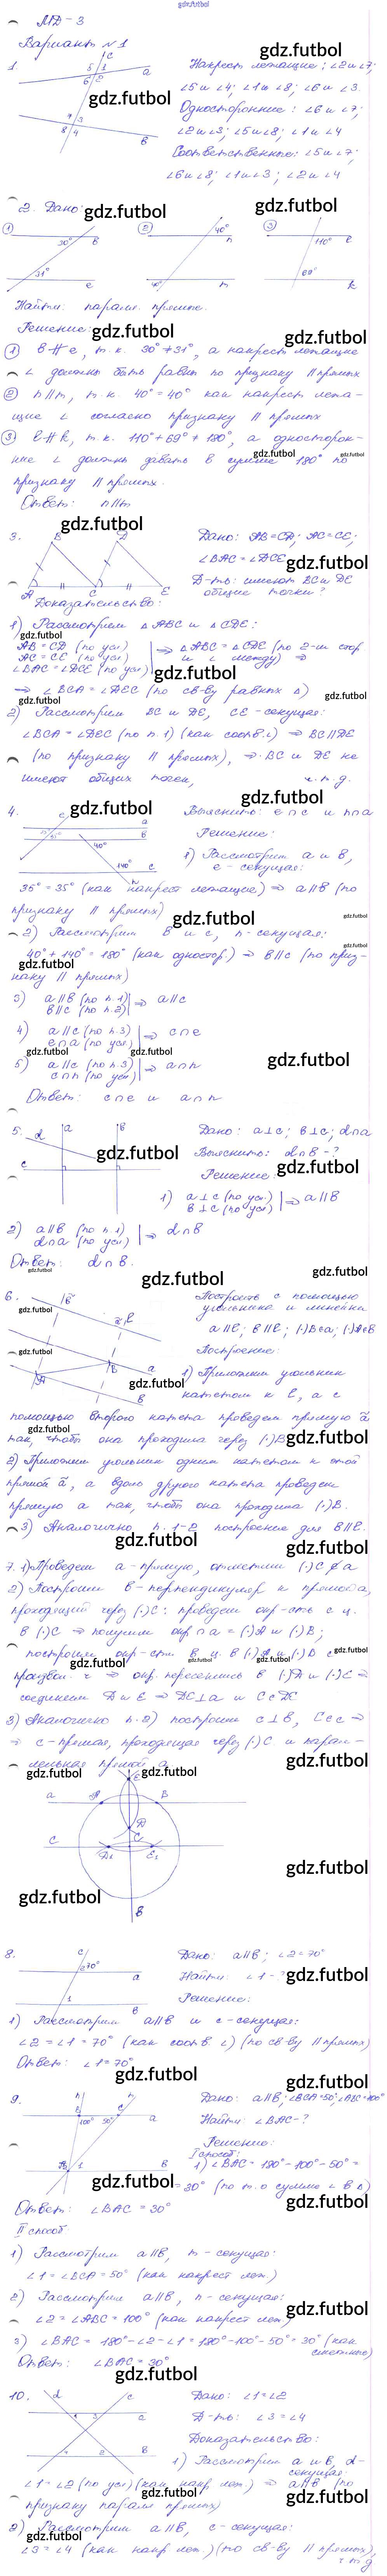 gdz.futbol
МД – 3
Вариант №1
1.
Накрест лежащие: ∠2 и ∠7;
∠5 и ∠4; ∠1 и ∠8; ∠6 и ∠3.
Односторонние: ∠6 и ∠7;
∠2 и ∠3; ∠5 и ∠8; ∠1 и ∠4
Соответственные: ∠5 и ∠7;
∠6 и ∠8; ∠1 и ∠3; ∠2 и ∠4
2. Дано:
Найти: паралл. прямые.
Решение:
① в ∦ е, т.к. 30° ≠ 31°, а накрест лежащие
∠ должны быть равны по признаку || прямых
② n || m, т.к. 40° = 40° как накрест лежа-
щие ∠ согласно признаку || прямых
③ ℓ ∦ k, т.к. 110° + 69° ≠ 180°, а односторон-
ние ∠ должны давать в сумме 180° по
признаку || прямых.
Ответ: n || m
3.
Дано: AB = CD; AC = CE;
∠BAC = ∠DCE
Д-ть: имеют BC и DE
общие точки?
Доказательство:
1) Рассмотрим △ABC и △CDE:
AB = CD (по усл)
AC = CE (по усл)
∠BAC = ∠DCE (по усл)
⇒ △ABC = △CDE (по 2-м стор
и ∠ между) ⇒
⇒ ∠BCA = ∠DEC (по св-ву равных △)
2) Рассмотрим BC и DE, CE – секущая:
∠BCA = ∠DEC (по п. 1) (как соотв. ∠) ⇒ BC || DE
(по признаку || прямых), ⇒ BC и DE не
имеют общих точек, ч.т.д.
4.
Выяснить: е ∩ с и n ∩ a
Решение:
1) Рассмотрим a и в,
е – секущая:
35° = 35° (как накрест лежащие) ⇒ a || в (по
признаку || прямых)
2) Рассмотрим в и с, n – секущая:
40° + 140° = 180° (как одностор.) ⇒ в || с (по приз-
наку || прямых)
3) a || в (по п. 1)
в || с (по п. 2)
⇒ a || с
4) a || с (по п. 3)
е ∩ a (по усл)
⇒ с ∩ е
5) a || с (по п. 3)
с ∩ n (по усл)
⇒ a ∩ n
Ответ: с ∩ е и a ∩ n
5.
Дано: a ⊥ c; в ⊥ c; d ∩ a
Выяснить: d ∩ в – ?
Решение:
1) a ⊥ c (по усл.)
в ⊥ c (по усл)
⇒ a || в
2) a || в (по п. 1)
d ∩ a (по усл)
⇒ d ∩ в
Ответ: d ∩ в.
6.
Построить с помощью
угольника и линейки
a || ℓ; в || ℓ; (·)B ∈ a; (·)A ∈ в
Построение:
1) Приложим угольник
катетом к ℓ, а с
помощью второго катета проведем прямую ã
так, чтобы она проходила через (·)B
2) Приложим угольник одним катетом к этой
прямой ã, а вдоль другого катета проведем
прямую a так, чтобы она проходила (·)B.
3) Аналогично п. 1-2 построение для в || ℓ.
7. 1) Проведем a – прямую, отметим (·)C ∉ a
2) Построим в – перпендикуляр к прямой a,
проходящий через (·)C: проведем окр-сть с ц.
в (·)C ⇒ получим окр ∩ a = (·)A и (·)B;
построим окр-сти с ц. в (·)A и (·)B с
произвол. r ⇒ окр. пересеклись в (·)D и (·)E ⇒
соединим D и E ⇒ DE ⊥ a и C ∈ DE
3) Аналогично п. 2) построим c ⊥ в, C ∈ c ⇒
⇒ c – прямая, проходящая через (·)C и парал-
лельная прямой a.
8.
Дано: a || в; ∠2 = 70°
Найти: ∠1 – ?
Решение:
1) Рассмотрим a || в и с – секущая:
∠2 = ∠1 = 70° (как соотв. ∠) (по св-ву || прямых)
Ответ: ∠1 = 70°
9.
Дано: a || в; ∠BCA = 50°; ∠ABC = 100°
Найти: ∠BAC – ?
Решение:
I способ:
1) ∠BAC = 180° – 100° – 50° =
= 30° (по т. о сумме ∠ в △)
Ответ: ∠BAC = 30°
II способ
1) Рассмотрим a || в, m – секущая:
∠1 = ∠BCA = 50° (как накрест леж.)
2) Рассмотрим a || в, n – секущая:
∠2 = ∠ABC = 100° (как накрест леж)
3) ∠BAC = 180° – ∠2 – ∠1 = 180° – 100° – 50° = 30° (как
смежные)
Ответ: ∠BAC = 30°
10.
Дано: ∠1 = ∠2
Д-ть: ∠3 = ∠4
Доказательство:
1) Рассмотрим a и в, d –
секущая:
∠1 = ∠2 (по усл) (как накр. леж.) ⇒ a || в (по
признаку паралл прямых)
2) Рассмотрим a || в, с – секущая:
∠3 = ∠4 (как накр леж.) (по св-ву || прямых),
ч.т.д.